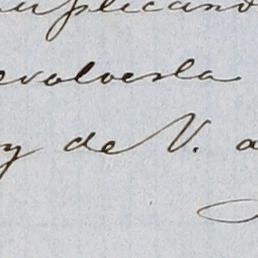 uplicand
evolverla
y de V. a